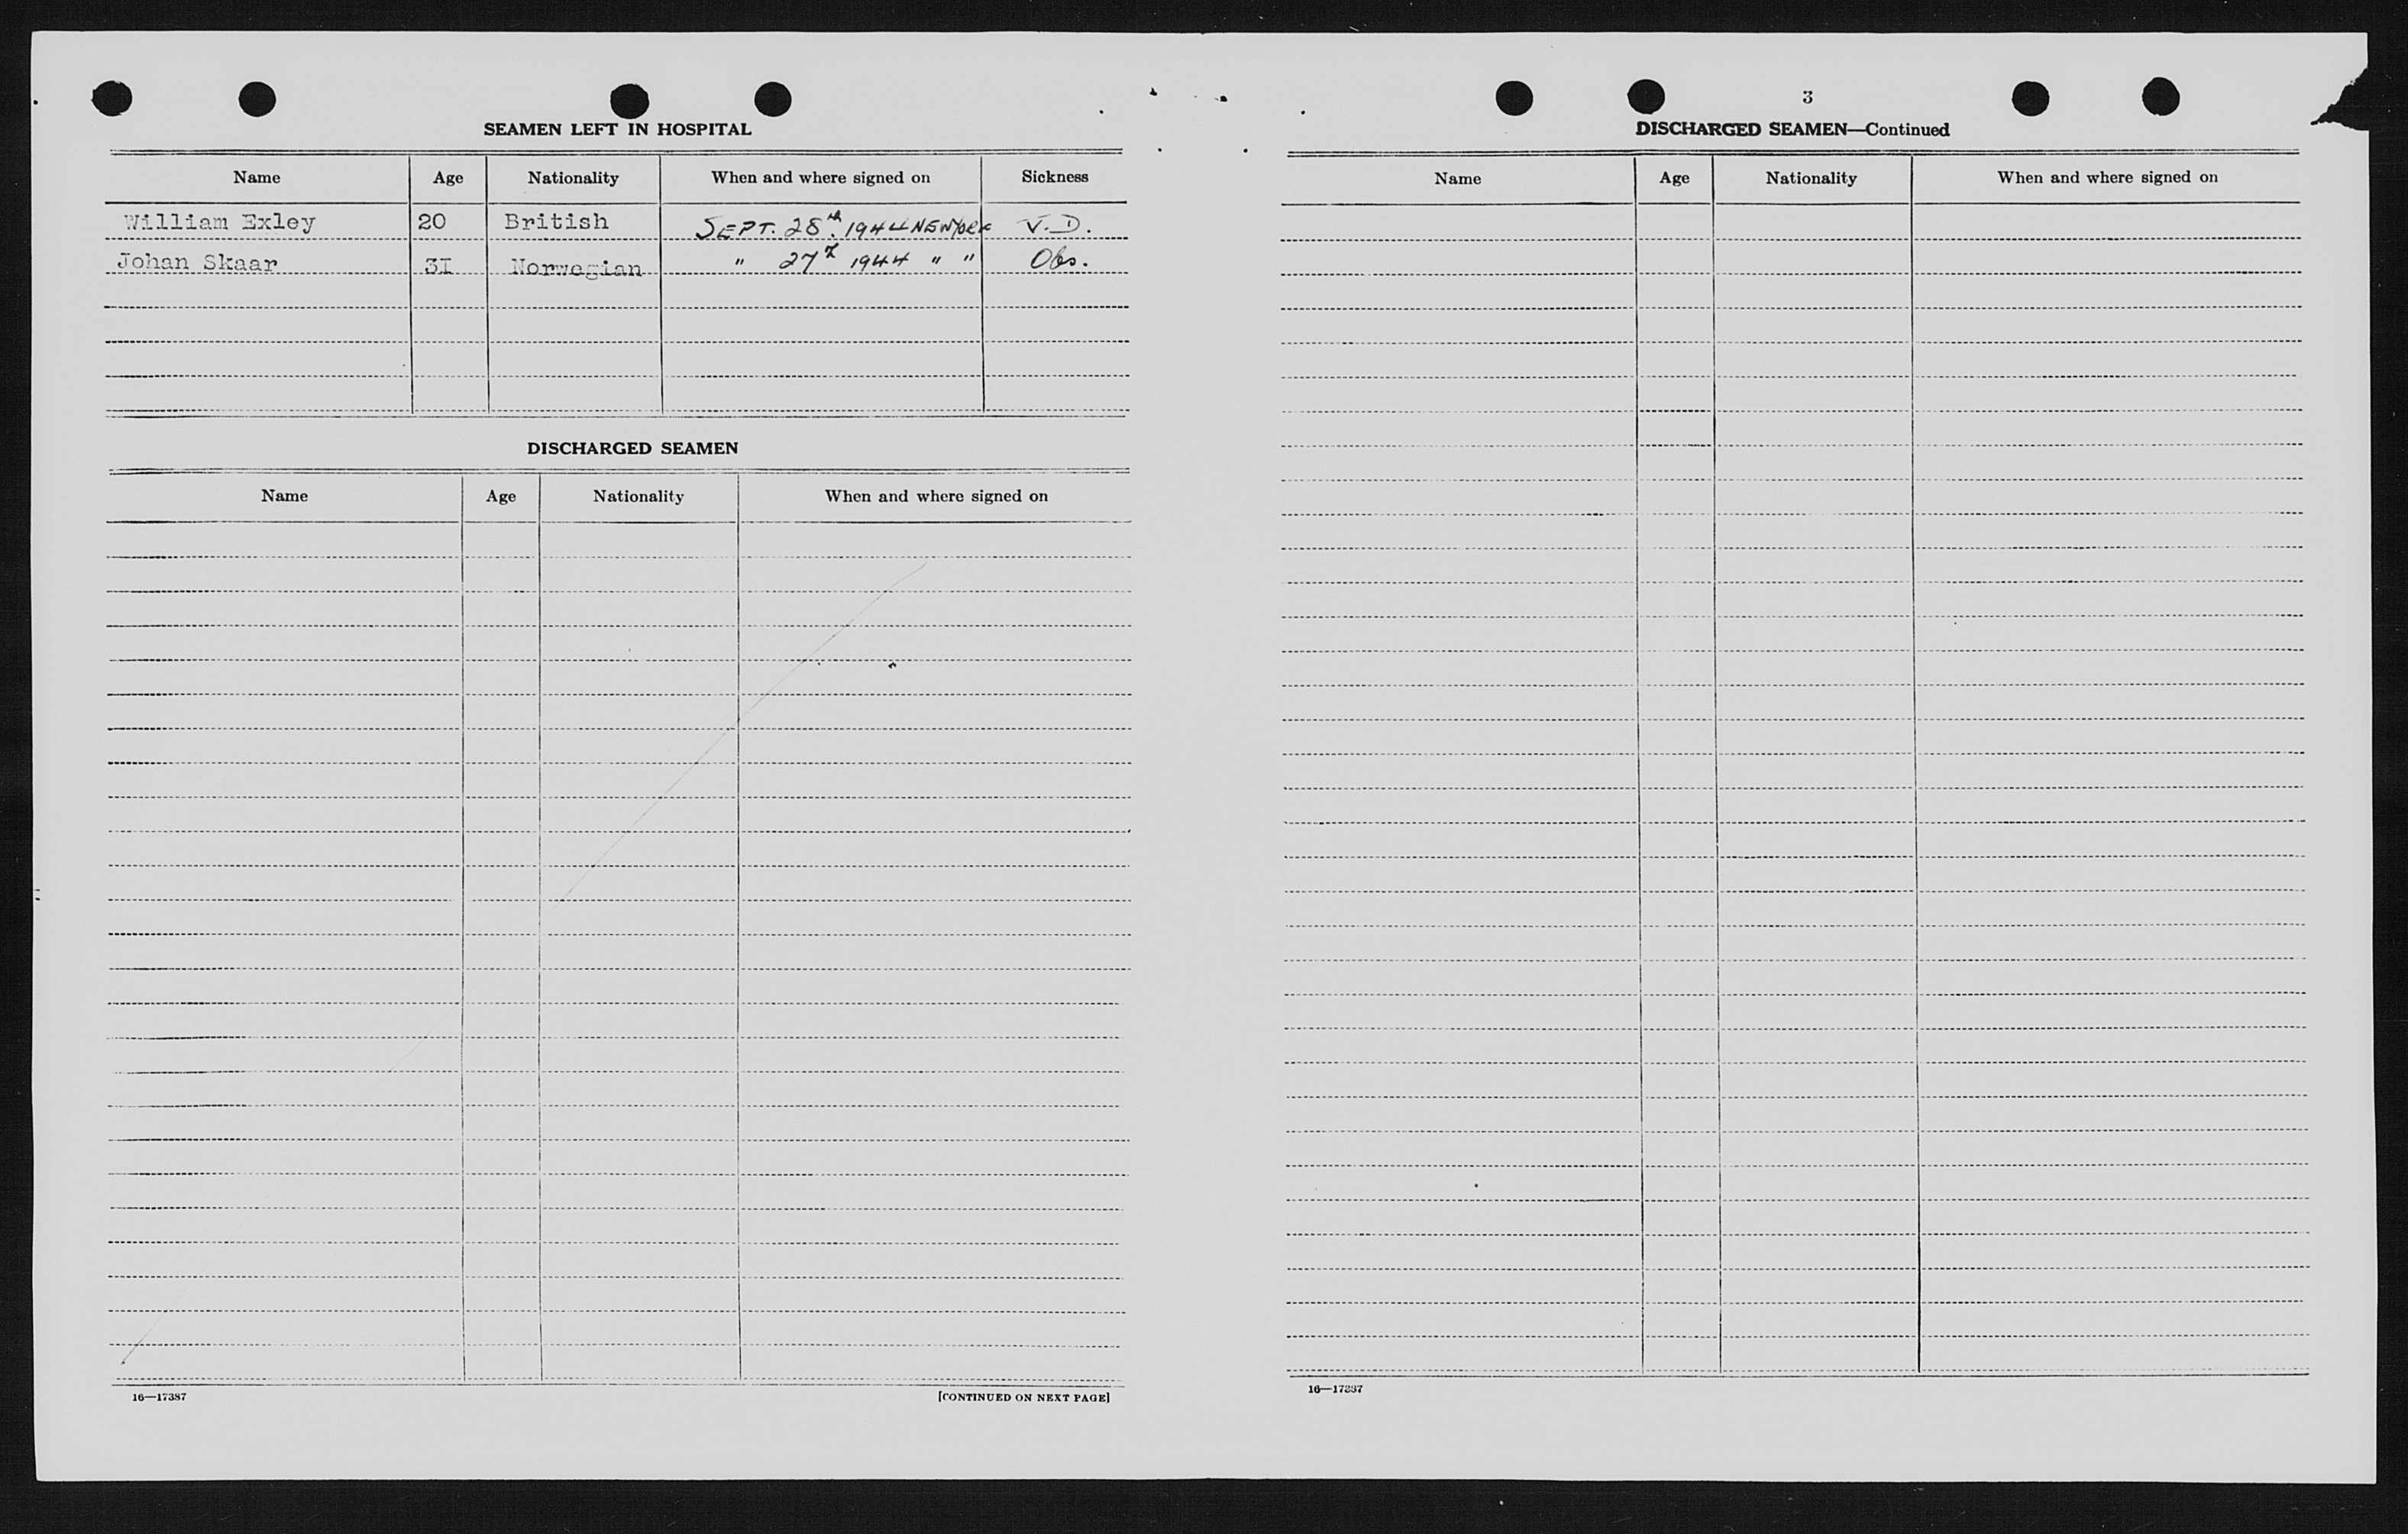 SEAMEN LEFT IN HOSPITAL
Name Age Nationality When and where signed on Sickness
William Exley 20 British SEPT. 28th. 1944 NEW YORK V.D.
Johan Skaar 3I Norwegian " 27th 1944 " " Obs.
DISCHARGED SEAMEN
Name Age Nationality When and where signed on
16—17387 [CONTINUED ON NEXT PAGE]
3
DISCHARGED SEAMEN—Continued
Name Age Nationality When and where signed on
16—17387